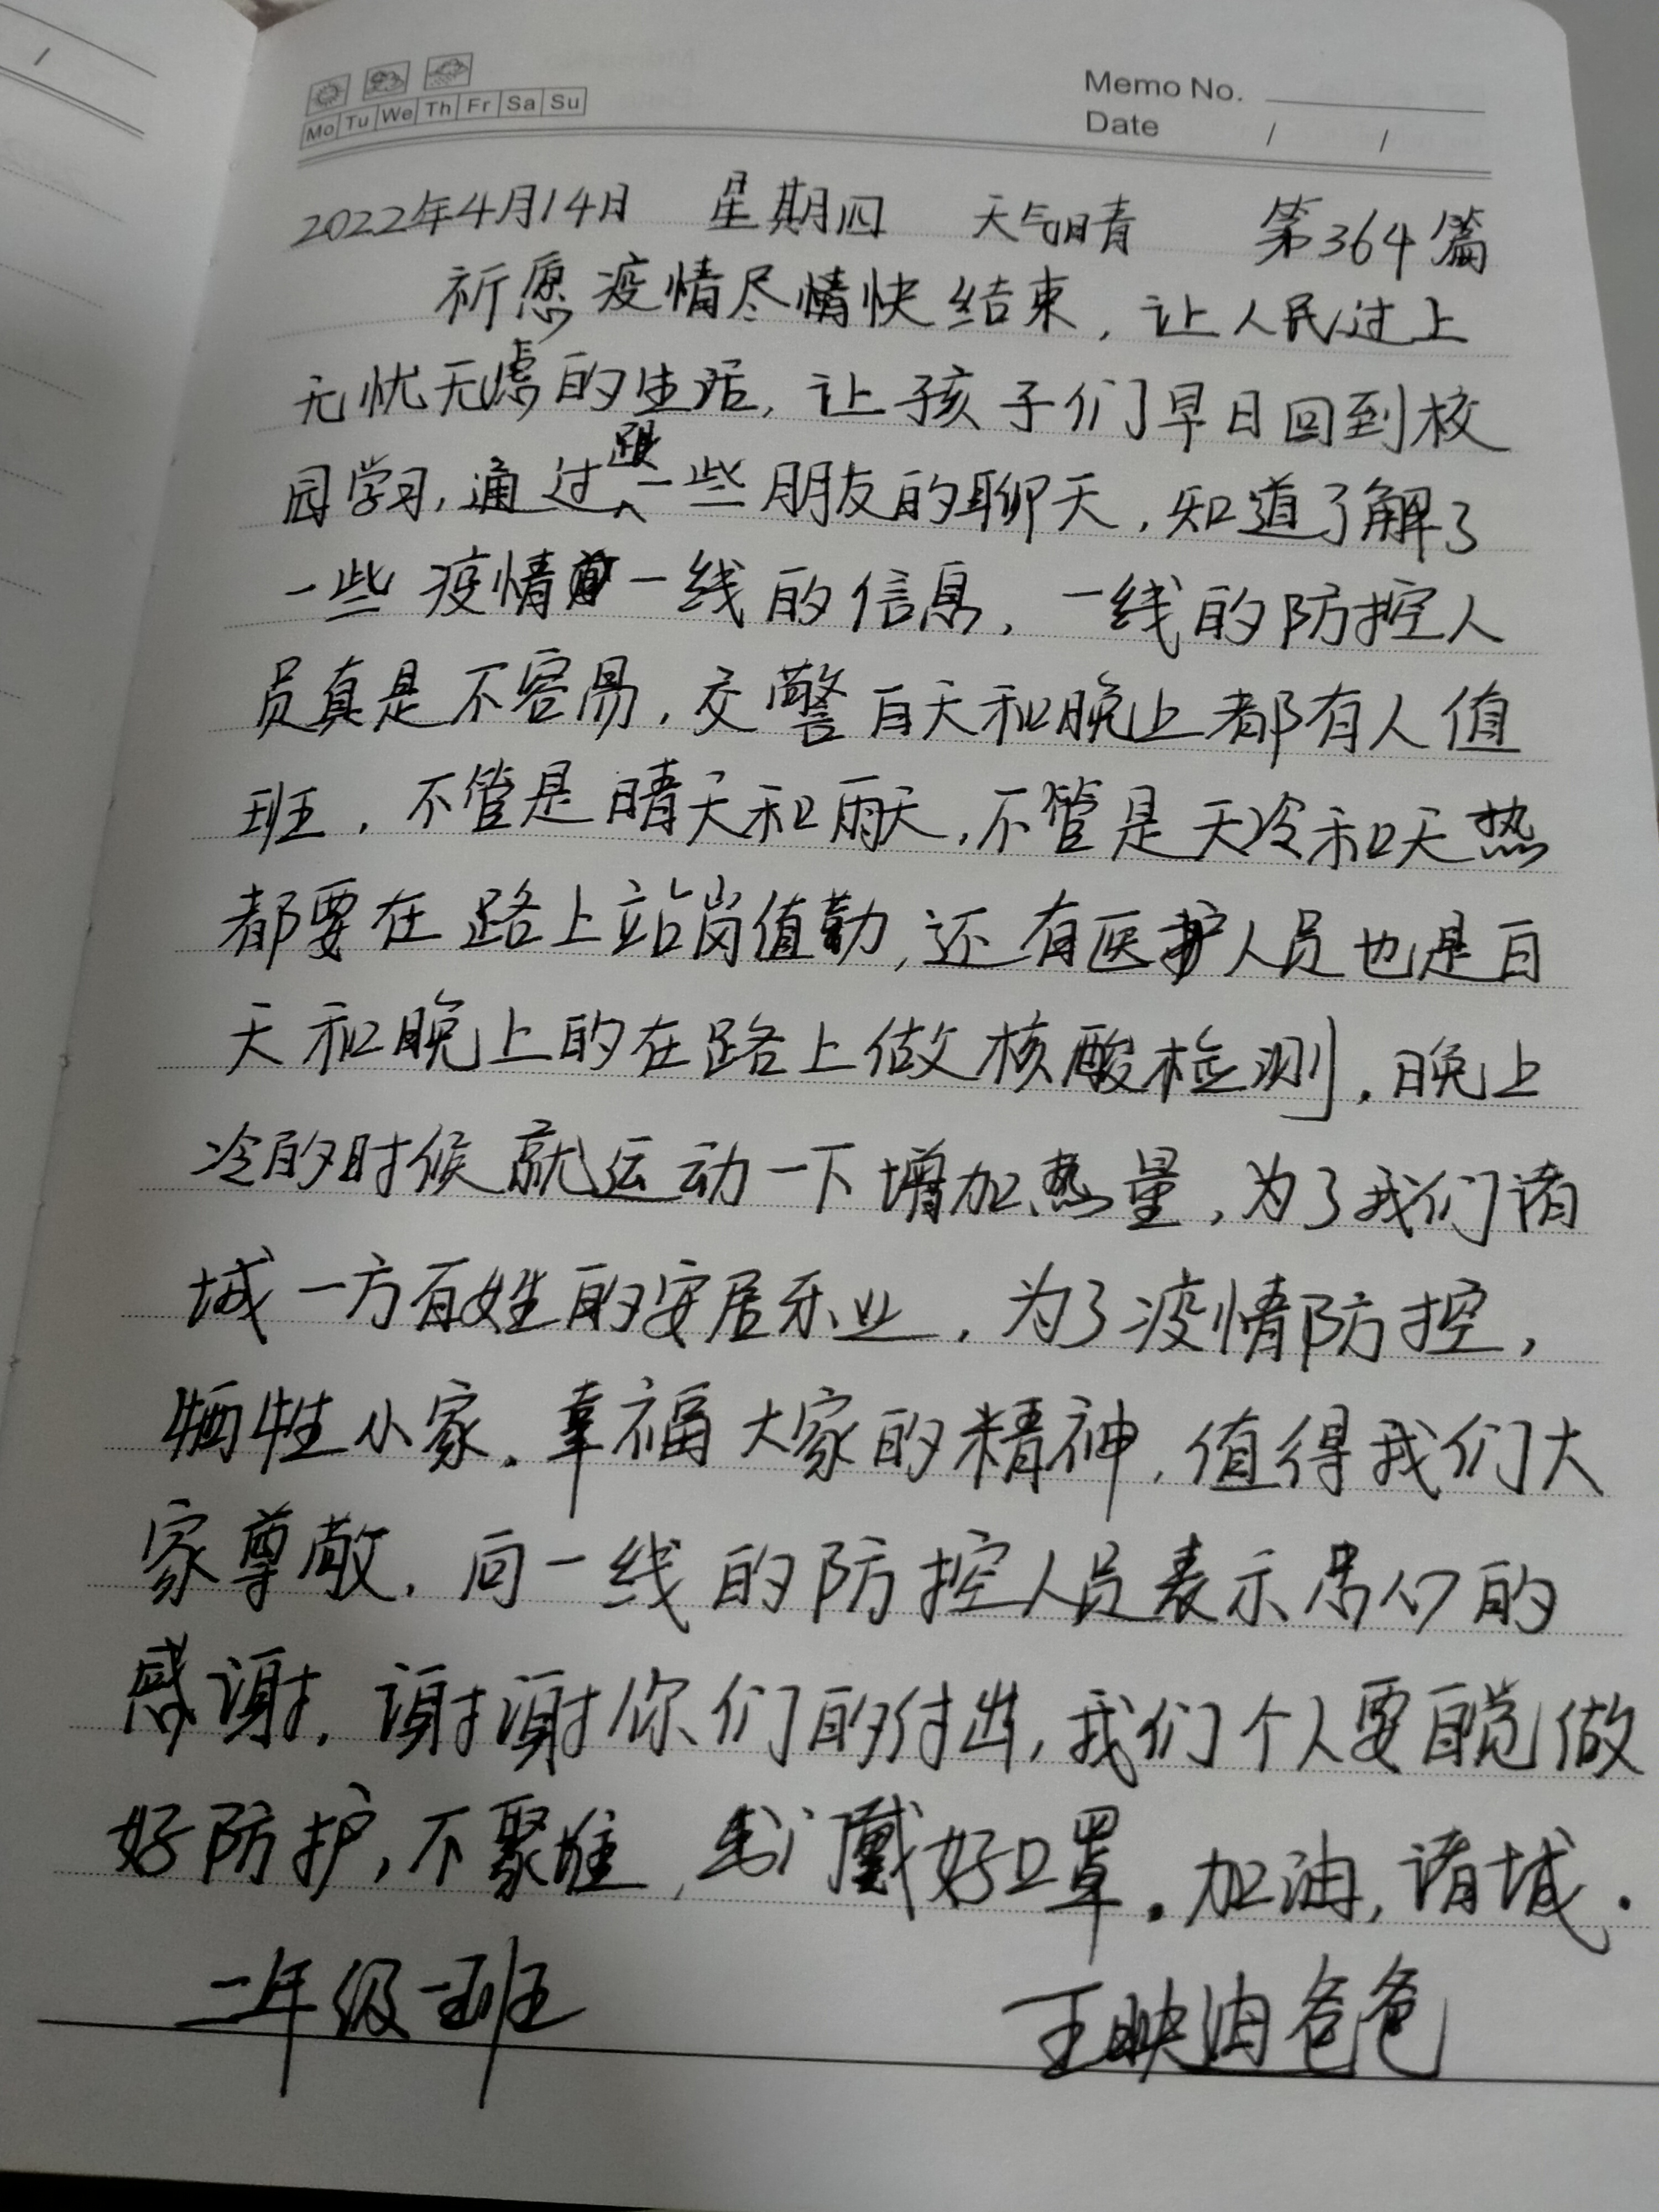 Mo Tu We Th Fr Sa Su
Memo No.
Date / /
2022年4月14日 星期四 天气晴 第364篇
祈愿疫情尽情快结束，让人民过上
无忧无虑的生活，让孩子们早日回到校
园学习，通过跟一些朋友的聊天，知道了解了
一些疫情一线的信息，一线的防控人
员真是不容易，交警白天和晚上都有人值
班，不管是晴天和雨天，不管是天冷和天热
都要在路上站岗值勤，还有医护人员也是白
天和晚上的在路上做核酸检测，晚上
冷的时候就运动一下增加热量，为了我们诸
城一方百姓的安居乐业，为了疫情防控，
牺牲小家，幸福大家的精神，值得我们大
家尊敬，向一线的防控人员表示忠心的
感谢，谢谢你们的付出，我们个人要自觉做
好防护，不聚堆，出门戴好口罩。加油，诸城.
二年级一班 王映爸爸